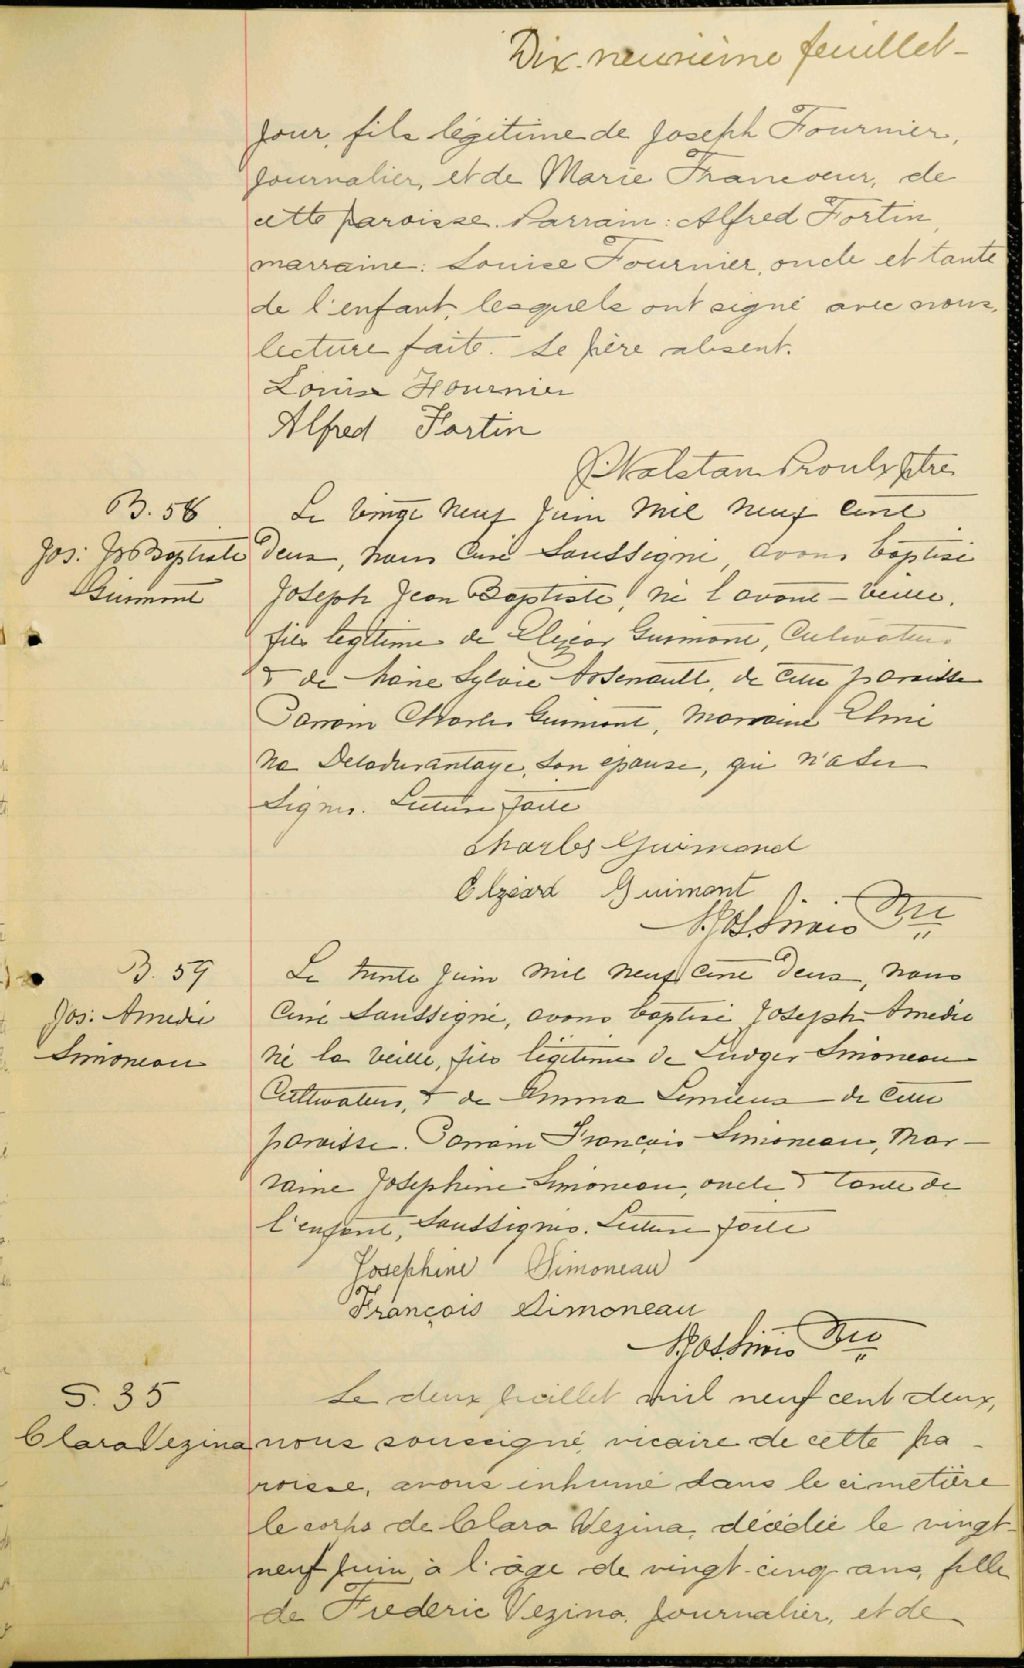 Dix-neuvième feuillet-
jour, fils légitime de Joseph Fournier,
journalier, et de Marie Francoeur, de
cette paroisse. Parrain: Alfred Fortin,
marraine: Louise Fournier, oncle et tante
de l'enfant, lesquels ont signé avec nous,
lecture faite. Le père absent.
Louise Fournier
Alfred Fortin
J. Walstan Proulx ptre
B. 58
Jos: Js Baptiste
Guimont
Le vingt neuf Juin mil neuf cent
deux, nous Curé Soussigné, avons baptisé
Joseph Jean Baptiste, né l'avant-veille,
fils légitime de Elzéar Guimont, Cultivateur
& de Marie Sylvie Arsenault, de cette paroisse
Parrain Charles Guimont, Marraine Elmi
na Deladurantaye, son épouse, qui n'a su
signer. Lecture faite
Charles Guimond
Elzéard Guimont
N. Jos. Sirois Ptre
B. 59
Jos: Amedé
Simoneau
Le trente Juin mil neuf cent deux, nous
Curé Soussigné, avons baptisé Joseph-Amedée
né la veille, fils légitime de Ludger Simoneau
Cultivateur, & de Emma Lemieux de cette
paroisse. Parrain François Simoneau, Mar-
raine Josephine Simoneau, oncle & tante de
l'enfant, Soussignés. Lecture faite
Josephine Simoneau
François Simoneau
N. Jos. Sirois Ptre
S. 35
Clara Vezina
Le deux juillet mil neuf cent deux,
nous soussigné, vicaire de cette pa-
roisse, avons inhumé dans le cimetière
le corps de Clara Vezina, décédée le vingt-
neuf juin, à l'âge de vingt-cinq ans, fille
de Frederic Vezina, journalier, et de